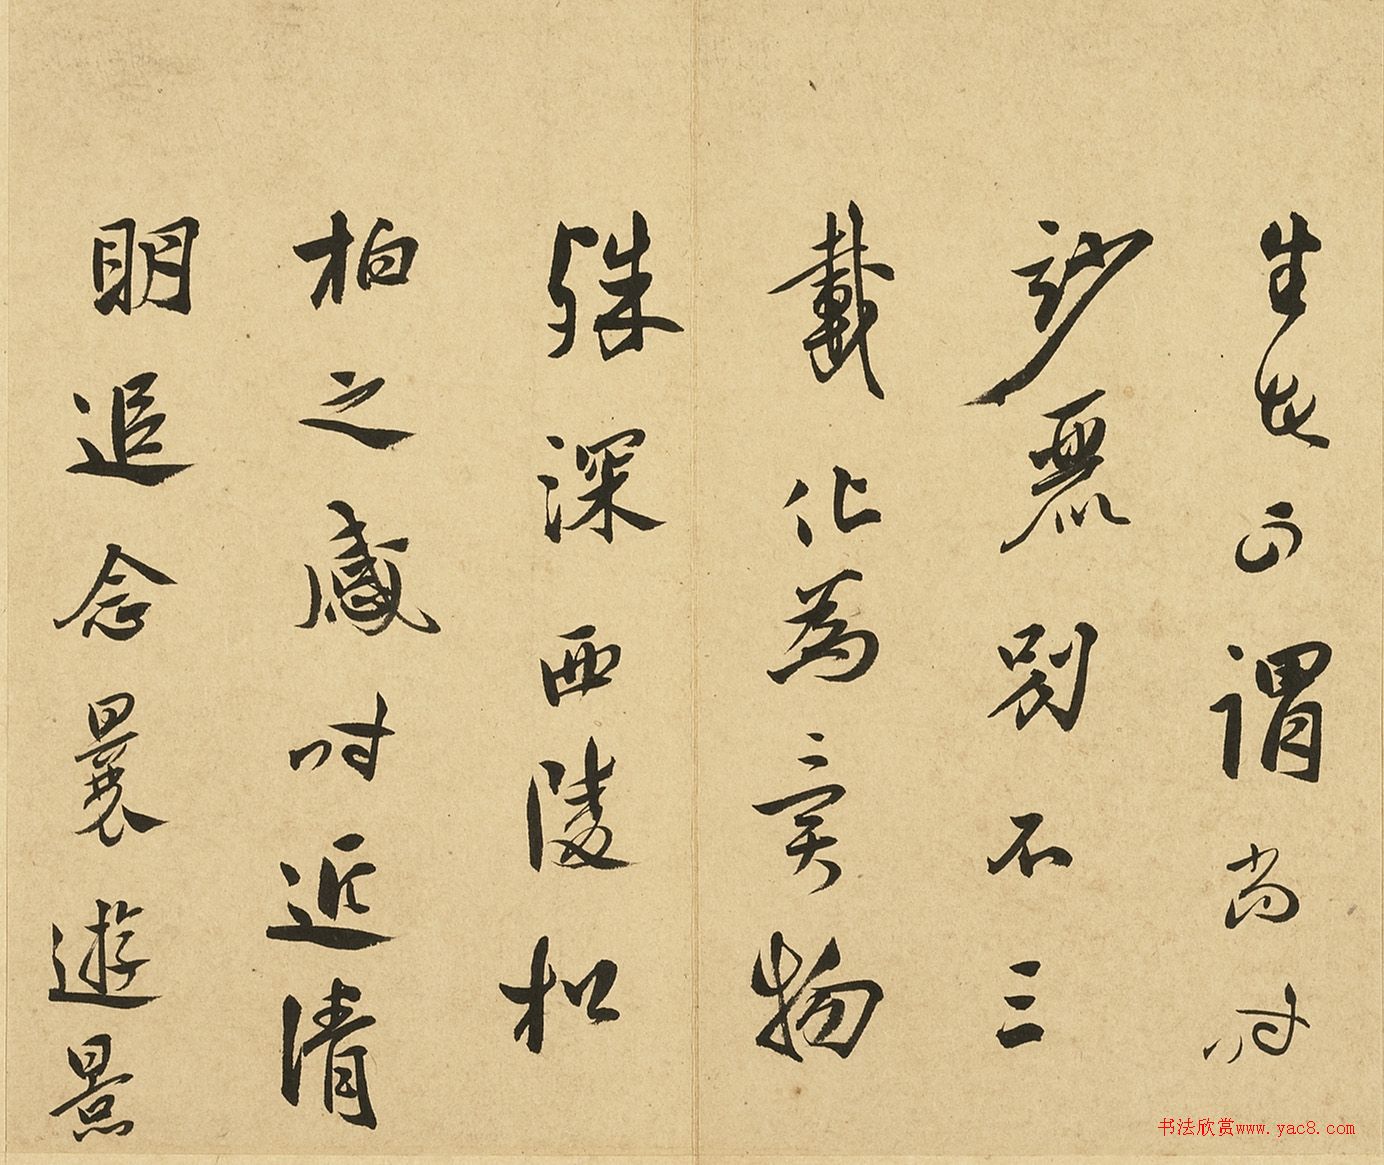 生老而謂尚時
妙麗別不三
載化為異物
殊深西陵松
柏之感時近清
明追念曩遊景
书法欣赏www.yac8.com